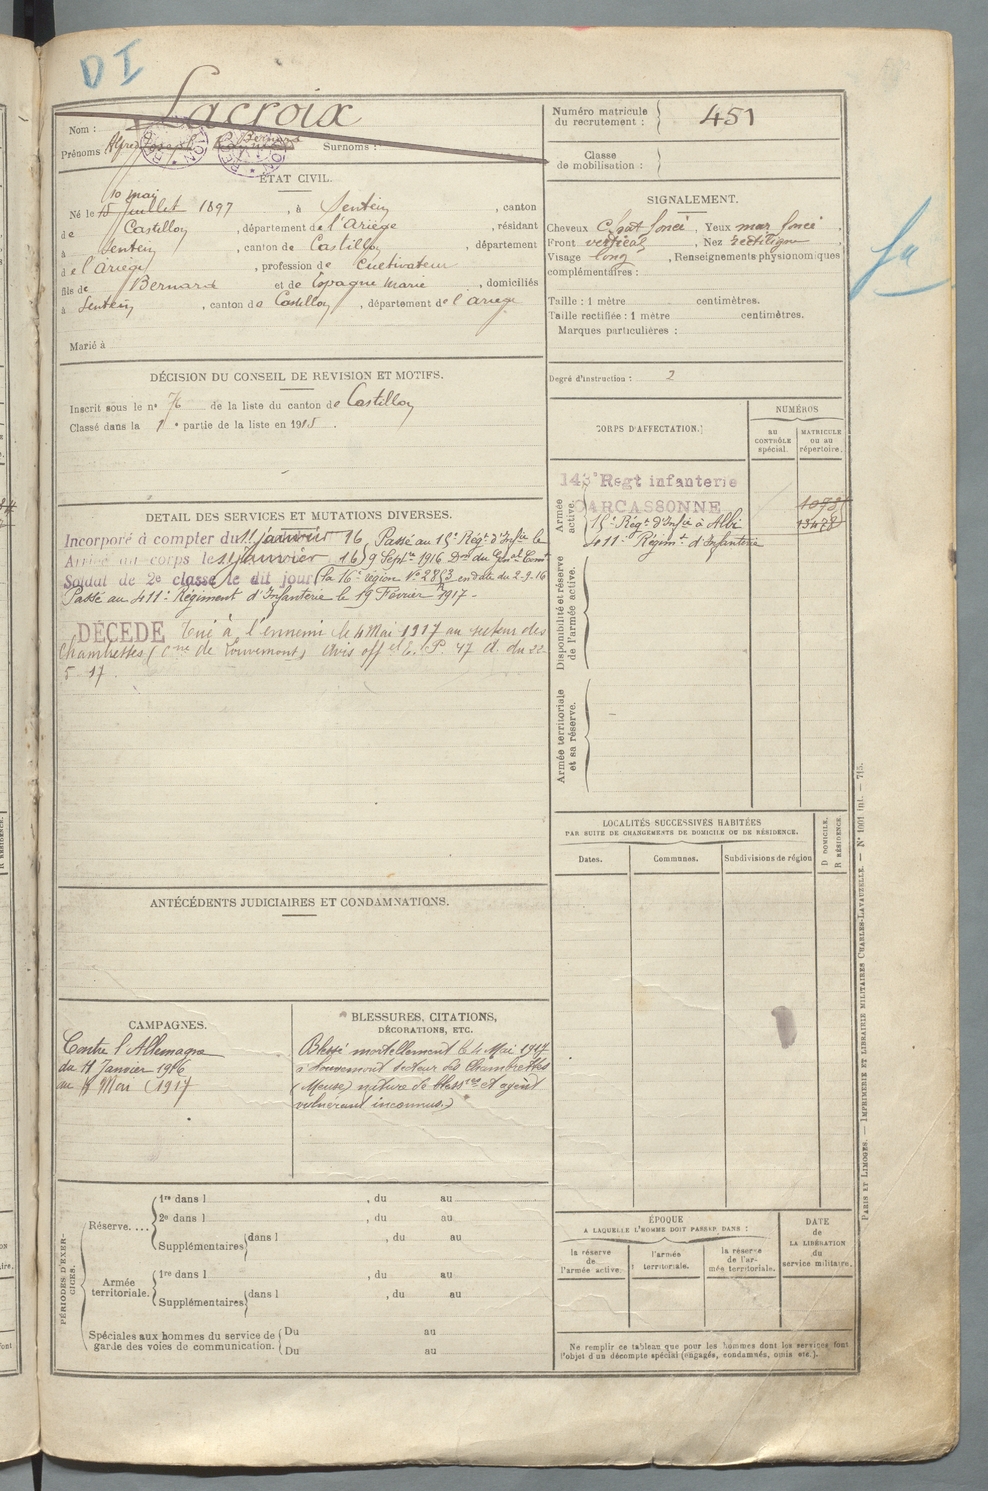 DI
Lacroix
Nom :
Prénoms : Alfred Joseph Bernard Surnoms :
Numéro matricule du recrutement : 451
Classe de mobilisation :
ÉTAT CIVIL.
10 mai
Né le 15 Juillet 1897, à Sentein, canton
de Castillon, département de l'Ariège, résidant
à Sentein, canton de Castillon, département
de l'Ariège, profession de Cultivateur
fils de Bernard et de Espagne Marie, domiciliés
à Sentein, canton de Castillon, département de l'ariège
Marié à
SIGNALEMENT.
Cheveux chat foncé, Yeux mar foncé,
Front vertical, Nez rectiligne,
Visage long, Renseignements physionomiques
complémentaires :
Taille : 1 mètre centimètres.
Taille rectifiée : 1 mètre centimètres.
Marques particulières :
Degré d'instruction : 2
DÉCISION DU CONSEIL DE REVISION ET MOTIFS.
Inscrit sous le n° 76 de la liste du canton de Castillon
Classé dans la 1e partie de la liste en 1915.
DÉTAIL DES SERVICES ET MUTATIONS DIVERSES.
Incorporé à compter du 11 janvier 16, Passé au 15e Régt d'Infie le
Arrivé au corps le 11 janvier 16 9 Septre 1916 Don du Gral Comt
Soldat de 2e classe le dit jour (la 16e région No 2853 en date du 2-9-16
Passé au 411e Régiment d'Infanterie le 19 Février 1917-
DÉCÉDÉ Tué à l'ennemi le 4 Mai 1917 au secteur des
Chambrettes (Cne de Louvemont) Avis offel E. P. 47 d. du 22
5-17.
CORPS D'AFFECTATION.
NUMÉROS
AU CONTRÔLE spécial.
MATRICULE ou au répertoire.
Armée active.
143e Regt infanterie
CARCASSONNE
15e Régt d'Infie à Albi 13478
411e Régimt d'Infanterie
Disponibilité et réserve de l'armée active.
Armée territoriale et sa réserve.
LOCALITÉS SUCCESSIVES HABITÉES
PAR SUITE DE CHANGEMENTS DE DOMICILE OU DE RÉSIDENCE.
Dates.
Communes.
Subdivisions de région
D DOMICILE.
R RÉSIDENCE.
ANTÉCÉDENTS JUDICIAIRES ET CONDAMNATIONS.
CAMPAGNES.
Contre l'Allemagne
du 11 Janvier 1916
au 4 Mai 1917
BLESSURES, CITATIONS,
DÉCORATIONS, ETC.
Blessé mortellement le 4 Mai 1917
à Louvemont secteur des Chambrettes
(Meuse) nature de blessres et agent
vulnérant inconnus.)
PÉRIODES D'EXERCICES.
Réserve....
1re dans l , du au
2e dans l , du au
Supplémentaires dans l , du au
Armée territoriale.
1re dans l , du au
Supplémentaires dans l , du au
Spéciales aux hommes du service de
garde des voies de communication.
Du au
Du au
ÉPOQUE
A LAQUELLE L'HOMME DOIT PASSER DANS :
la réserve de l'armée active.
l'armée territoriale.
la réserve de l'armée territoriale.
DATE de LA LIBÉRATION du service militaire.
Ne remplir ce tableau que pour les hommes dont les services font
l'objet d'un décompte spécial (engagés, condamnés, omis etc.).
PARIS ET LIMOGES. — IMPRIMERIE ET LIBRAIRIE MILITAIRES CHARLES-LAVAUZELLE. — N° 1001 int. — 715.